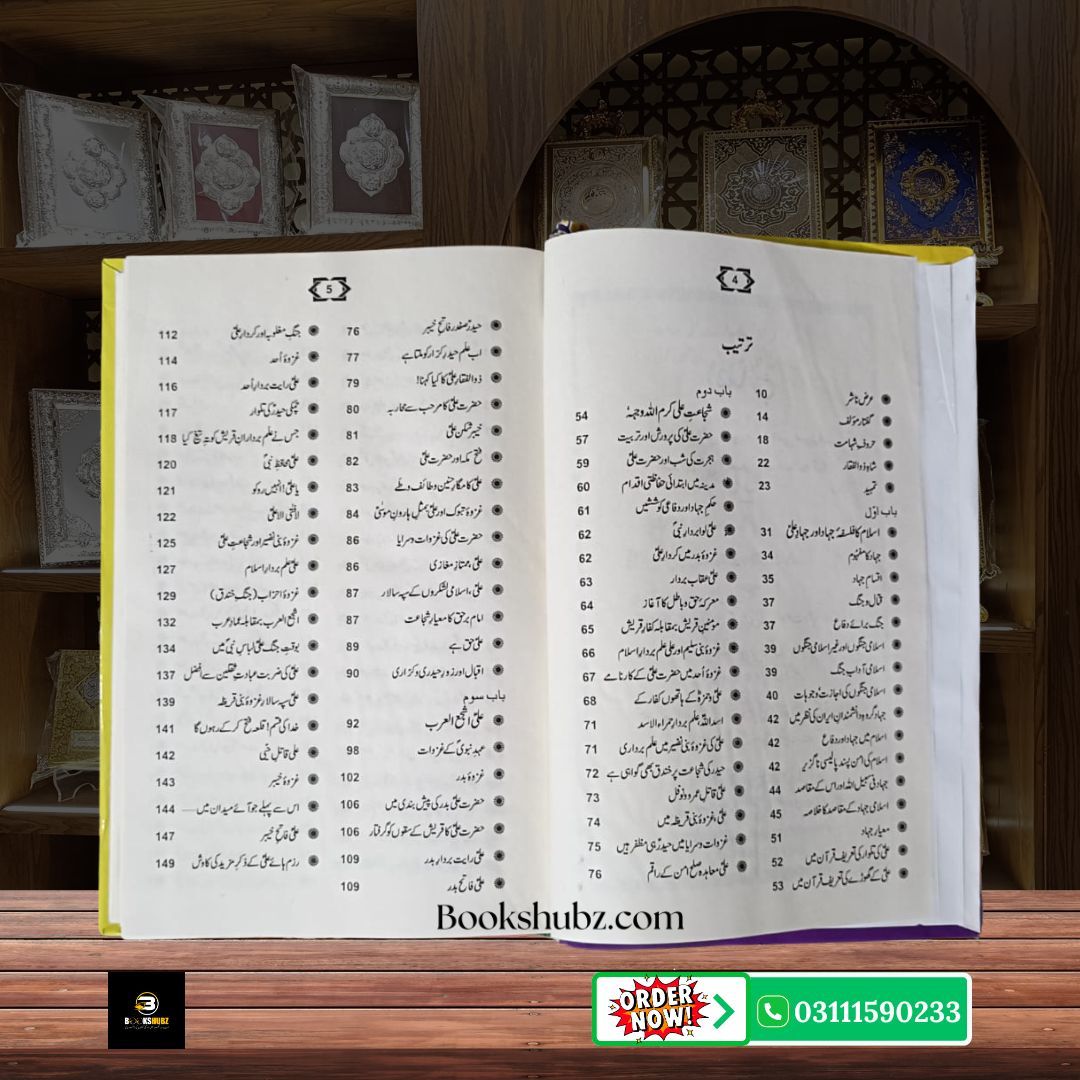 4
ترتیب
عرض ناشر 10
گفتار مؤلف 14
حروفِ شہامت 18
شاہِ ذوالفقار 22
تمہید 23
باب اوّل
اسلام کا فلسفہ جہاد اور جہادِ علیؑ 31
جہاد کا مفہوم 34
اقسام جہاد 35
قتال و جنگ 37
جنگ برائے دفاع 37
اسلامی جنگوں اور غیر اسلامی جنگوں 39
اسلامی آداب جنگ 39
اسلامی جنگوں کی اجازت و وجوہات 40
جہاد گروہ دانشمندان ایران کی نظر میں 42
اسلام میں جہاد اور دفاع 42
اسلام کی امن پسند پالیسی ناگزیر 42
جہاد فی سبیل اللہ اور اس کے مقاصد 44
اسلامی جہاد کے مقاصد کا خلاصہ 45
معیارِ جہاد 51
علیؑ کی تلوار کی تعریف قرآن میں 52
علیؑ کے گھوڑے کی تعریف قرآن میں 53
باب دوم
شجاعتِ علی کرم اللہ وجہہٗ 54
حضرت علیؑ کی پرورش اور تربیت 57
ہجرت کی شب اور حضرت علیؑ 59
مدینہ میں ابتدائی حفاظتی اقدام 60
حکمِ جہاد اور دفاعی کوششیں 61
علیؑ لوا بردارِ نبیؐ 62
غزوۂ بدر میں کردارِ علیؑ 62
علیؑ عقاب بردار 63
معرکۂ حق و باطل کا آغاز 64
مومنینِ قریش بمقابلہ کفارِ قریش 65
غزوۂ بنی سلیم اور علیؑ علم بردارِ اسلام 66
غزوۂ اُحد میں حضرت علیؑ کے کارنامے 67
علیؑ و حمزہؑ کے ہاتھوں کفار کے 68
اسد اللہ علم بردارِ حمراء الاسد 71
علیؑ کی غزوۂ بنی نضیر میں علم برداری 71
حیدر کی شجاعت پر خندق بھی گواہی ہے 72
علیؑ قاتلِ عمرو و نوفل 73
علیؑ غزوۂ بنی قریظہ میں 74
غزوات و سرایا میں حیدرؑ ہی مظفر ہیں 75
علیؑ معاہدہ صلح امن کے راقم 76
5
حیدرِ صفدر فاتحِ خیبر 76
اب علم حیدرِ کرار کو ملتا ہے 77
ذوالفقارِ علیؑ کا کیا کہنا! 79
حضرت علیؑ کا مرحب سے محاربہ 80
خیبر شکن علیؑ 81
فتح مکہ اور حضرت علیؑ 82
علیؑ کا معرکہ حنین و طائف و طے 83
غزوۂ تبوک اور علیؑ بمثلِ ہارونِ موسیٰؑ 84
حضرت علیؑ کی غزوات و سرایا 86
علیؑ ممتازِ مغازی 86
علیؑ، اسلامی لشکروں کے سپہ سالار 87
امامِ برحق کا معیارِ شجاعت 87
علیؑ حق ہے 89
اقبال اور زورِ حیدری و کراری 90
باب سوم
علیؑ اشجع العرب 92
عہدِ نبویؐ کے غزوات 98
غزوۂ بدر 102
حضرت علیؑ بدر کی پیش بندی میں 106
حضرت علیؑ کا قریش کے سقوں کو گرفتار 106
علیؑ رایت بردارِ بدر 109
علیؑ فاتحِ بدر 109
جنگِ مغلوبہ اور کردارِ علیؑ 112
غزوۂ اُحد 114
علیؑ رایت بردارِ اُحد 116
چمکی حیدرؑ کی تلوار 117
جس نے علم بردارانِ قریش کو تہِ تیغ کیا 118
علیؑ محافظِ نبیؐ 120
یا علیؑ! انہیں روکو 121
لافتیٰ الا علیؑ 122
غزوۂ بنی نضیر اور شجاعتِ علیؑ 125
علیؑ علم بردارِ اسلام 127
غزوۂ احزاب (جنگِ خندق) 129
اشجع العرب بمقابلہ عمادِ عرب 132
بوقتِ جنگ علیؑ لباسِ نبیؐ میں 134
علیؑ کی ضربت عبادتِ ثقلین سے افضل 137
علیؑ سپہ سالارِ غزوۂ بنی قریظہ 139
خدا کی قسم! قلعہ فتح کر کے رہوں گا 141
علیؑ قاتلِ حُیَی 142
غزوۂ خیبر 143
اس سے پہلے جو آئے میدان میں ...... 144
علیؑ فاتحِ خیبر 147
رزم ہائے علیؑ کے ذکرِ مزید کی کاوش 149
Bookshubz.com
BOOKSHUBZ
ORDER NOW!
03111590233